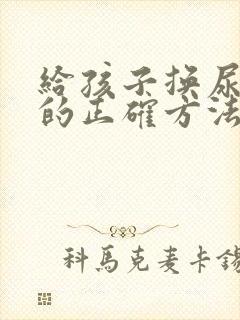 給孩子換尿
的正確方法
科馬克麦卡錫